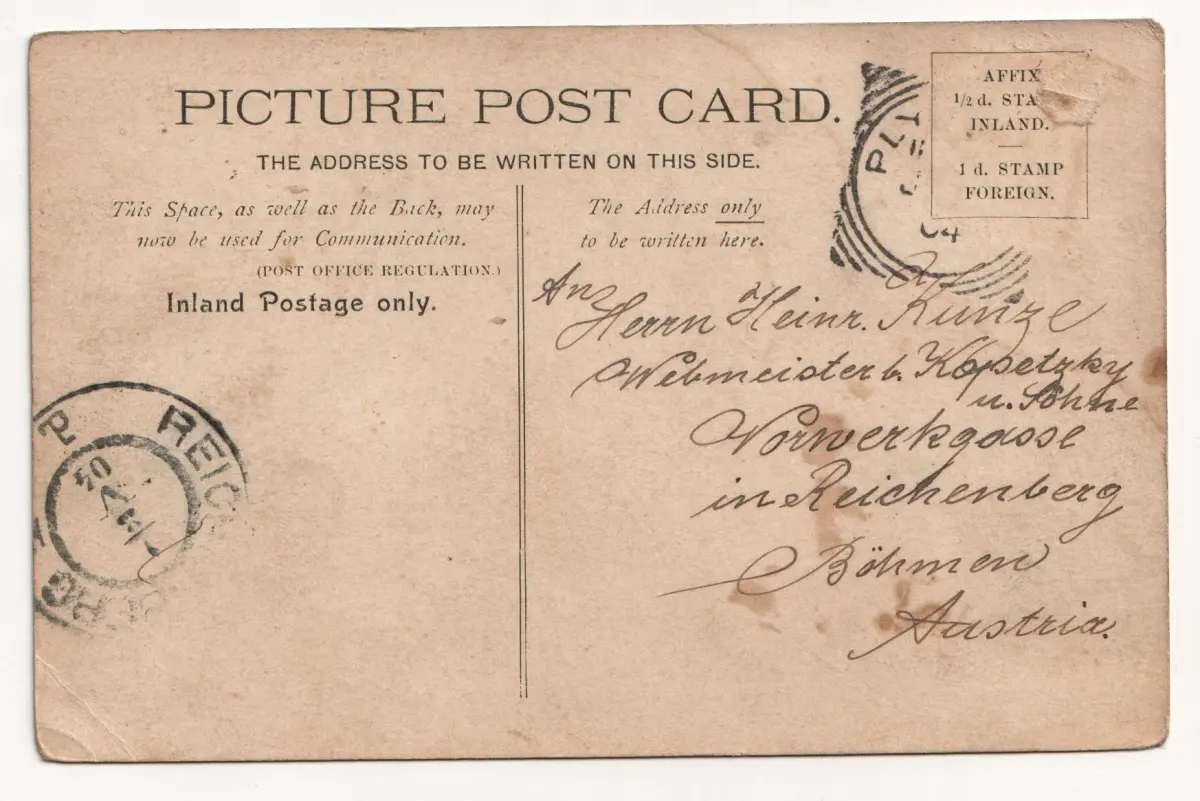 PICTURE POST CARD.
THE ADDRESS TO BE WRITTEN ON THIS SIDE.
This Space, as well as the Back, may
now be used for Communication.
(POST OFFICE REGULATION.)
Inland Postage only.
The Address only
to be written here.
AFFIX
1/2 d. STA
INLAND.
1 d. STAMP
FOREIGN.
PLY
04
An
Herrn Heinr. Kunze
Webmeister b. Kopetzky
u. Söhne
Vorwerkgasse
in Reichenberg
Böhmen
Austria.
REIC
ERG
04